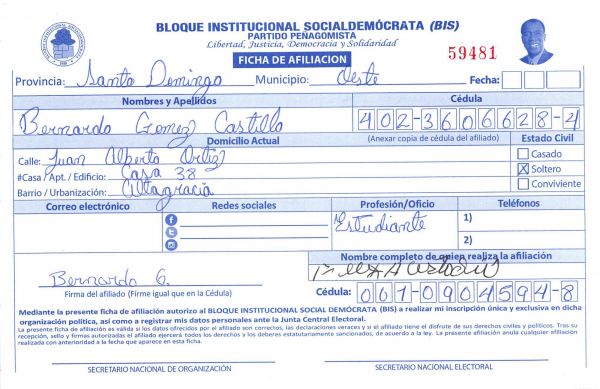 BLOQUE INSTITUCIONAL SOCIALDEMÓCRATA (BIS)
PARTIDO PEÑAGOMISTA
Libertad, Justicia, Democracia y Solidaridad
FICHA DE AFILIACION
59481
Provincia: Santo Domingo Municipio: Oeste Fecha:
Nombres y Apellidos Cédula
Bernardo Gomez Castillo 402-3606628-4
Domicilio Actual (Anexar copia de cédula del afiliado) Estado Civil
Calle: Juan Alberto Ortiz
Casado
#Casa / Apt. / Edificio: Casa 38
X Soltero
Barrio / Urbanización: Altagracia
Conviviente
Correo electrónico Redes sociales Profesión/Oficio Teléfonos
Estudiante
1)
2)
Nombre completo de quien realiza la afiliación
Bernardo G.
Firma del afiliado (Firme igual que en la Cédula)
Cédula: 001-0904594-8
Mediante la presente ficha de afiliación autorizo al BLOQUE INSTITUCIONAL SOCIAL DEMÓCRATA (BIS) a realizar mi inscripción única y exclusiva en dicha
organización política, así como a registrar mis datos personales ante la Junta Central Electoral.
La presente ficha de afiliación es válida si los datos ofrecidos por el afiliado son correctos, las declaraciones veraces y si el afiliado tiene el disfrute de sus derechos civiles y políticos. Tras su
recepción, sello y firmas autorizadas el afiliado ejercerá todos los derechos y los deberes estatutariamente sancionados, de acuerdo a la ley. La presente afiliación anula cualquier afiliación
realizada con anterioridad a la fecha que aparece en esta ficha.
SECRETARIO NACIONAL DE ORGANIZACIÓN SECRETARIO NACIONAL ELECTORAL